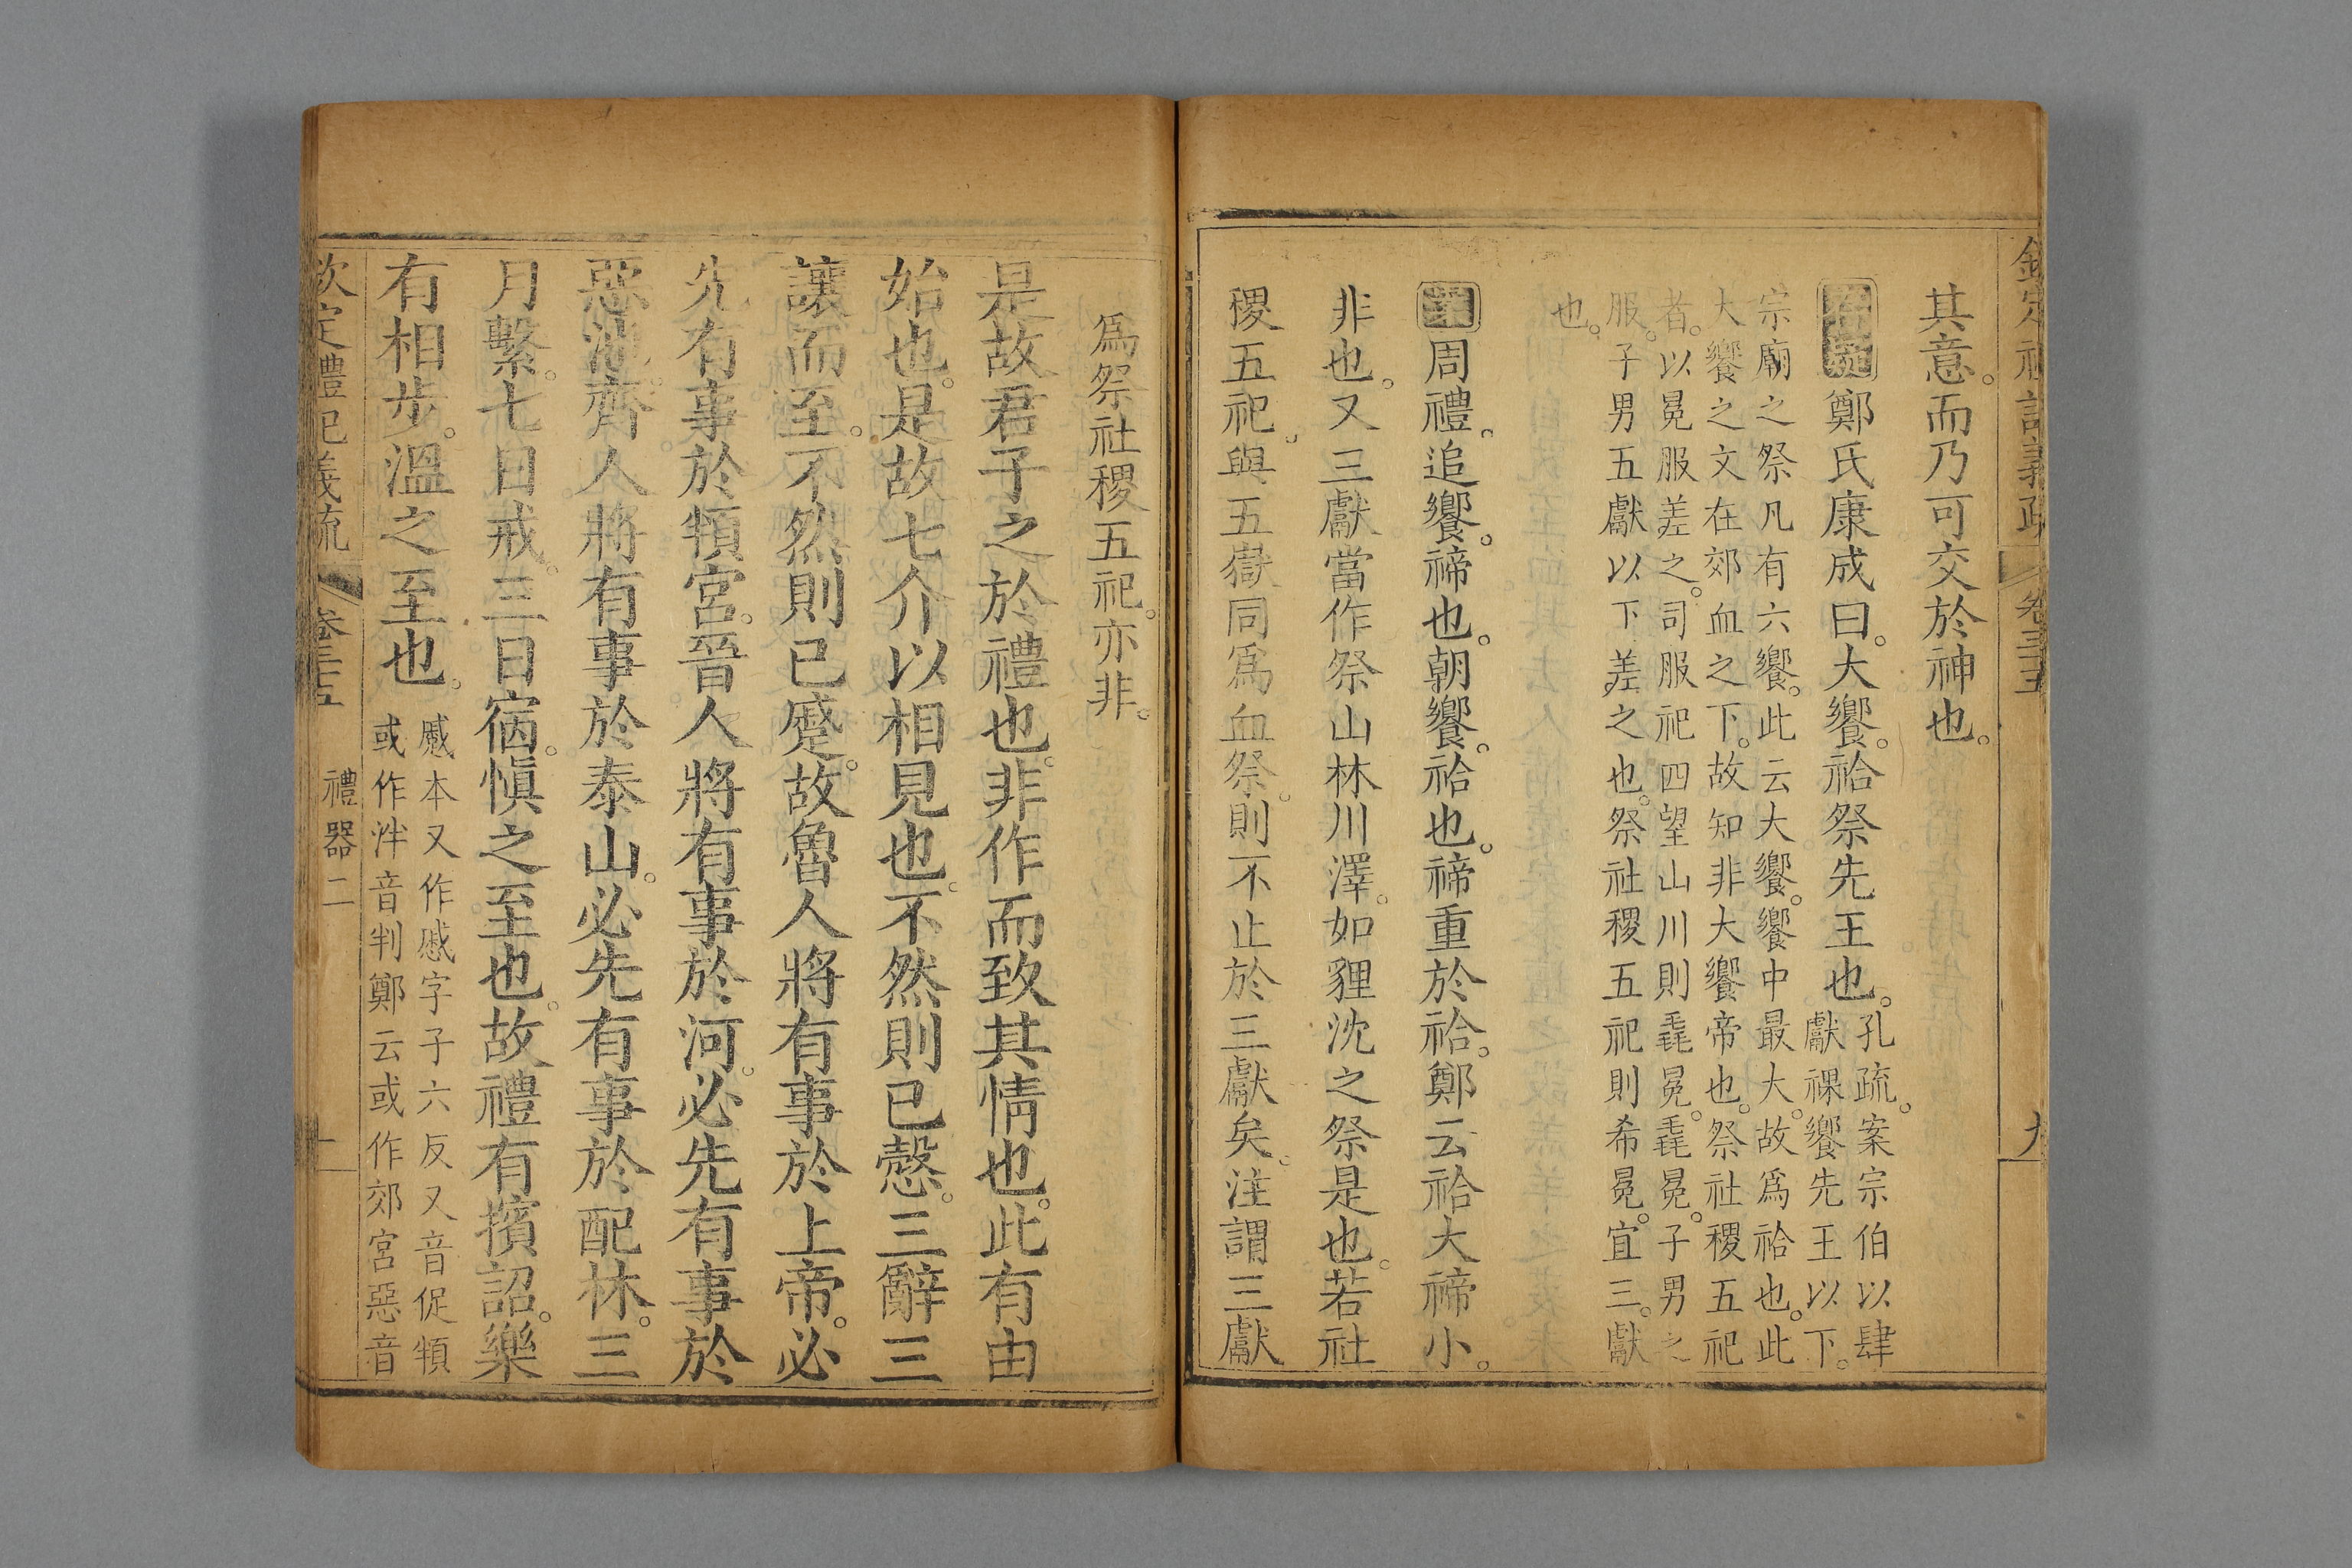 欽定禮記義疏 卷三十五 九
其意。而乃可交於神也。
存疑 鄭氏康成曰。大饗。祫祭先王也。
孔疏。案宗伯以肆
獻祼饗先王以下。
宗廟之祭凡有六饗。此云大饗。饗中最大。故爲祫也。此
大饗之文在郊血之下。故知非大饗帝也。祭社稷五祀
者。以冕服差之。司服祀四望山川則毳冕。毳冕。子男之
服。子男五獻以下差之也。祭社稷五祀則希冕。宜三。獻
也。
案 周禮。追饗。禘也。朝饗。祫也。禘重於祫。鄭云祫大禘小。
非也。又三獻當作祭山林川澤。如貍沈之祭是也。若社
稷五祀。與五嶽同爲血祭。則不止於三獻矣。注謂三獻
爲祭社稷五祀。亦非。
是故君子之於禮也。非作而致其情也。此有由
始也。是故七介以相見也。不然則已慤。三辭三
讓而至。不然則已蹙。故魯人將有事於上帝。必
先有事於頖宮。晉人將有事於河。必先有事於
惡池。齊人將有事於泰山。必先有事於配林。三
月繫。七日戒。三日宿。愼之至也。故禮有擯詔。樂
有相步。溫之至也。
蹙本又作慼字子六反又音促頖
或作泮音判鄭云或作郊宮惡音
欽定禮記義疏 卷三十五 禮器二